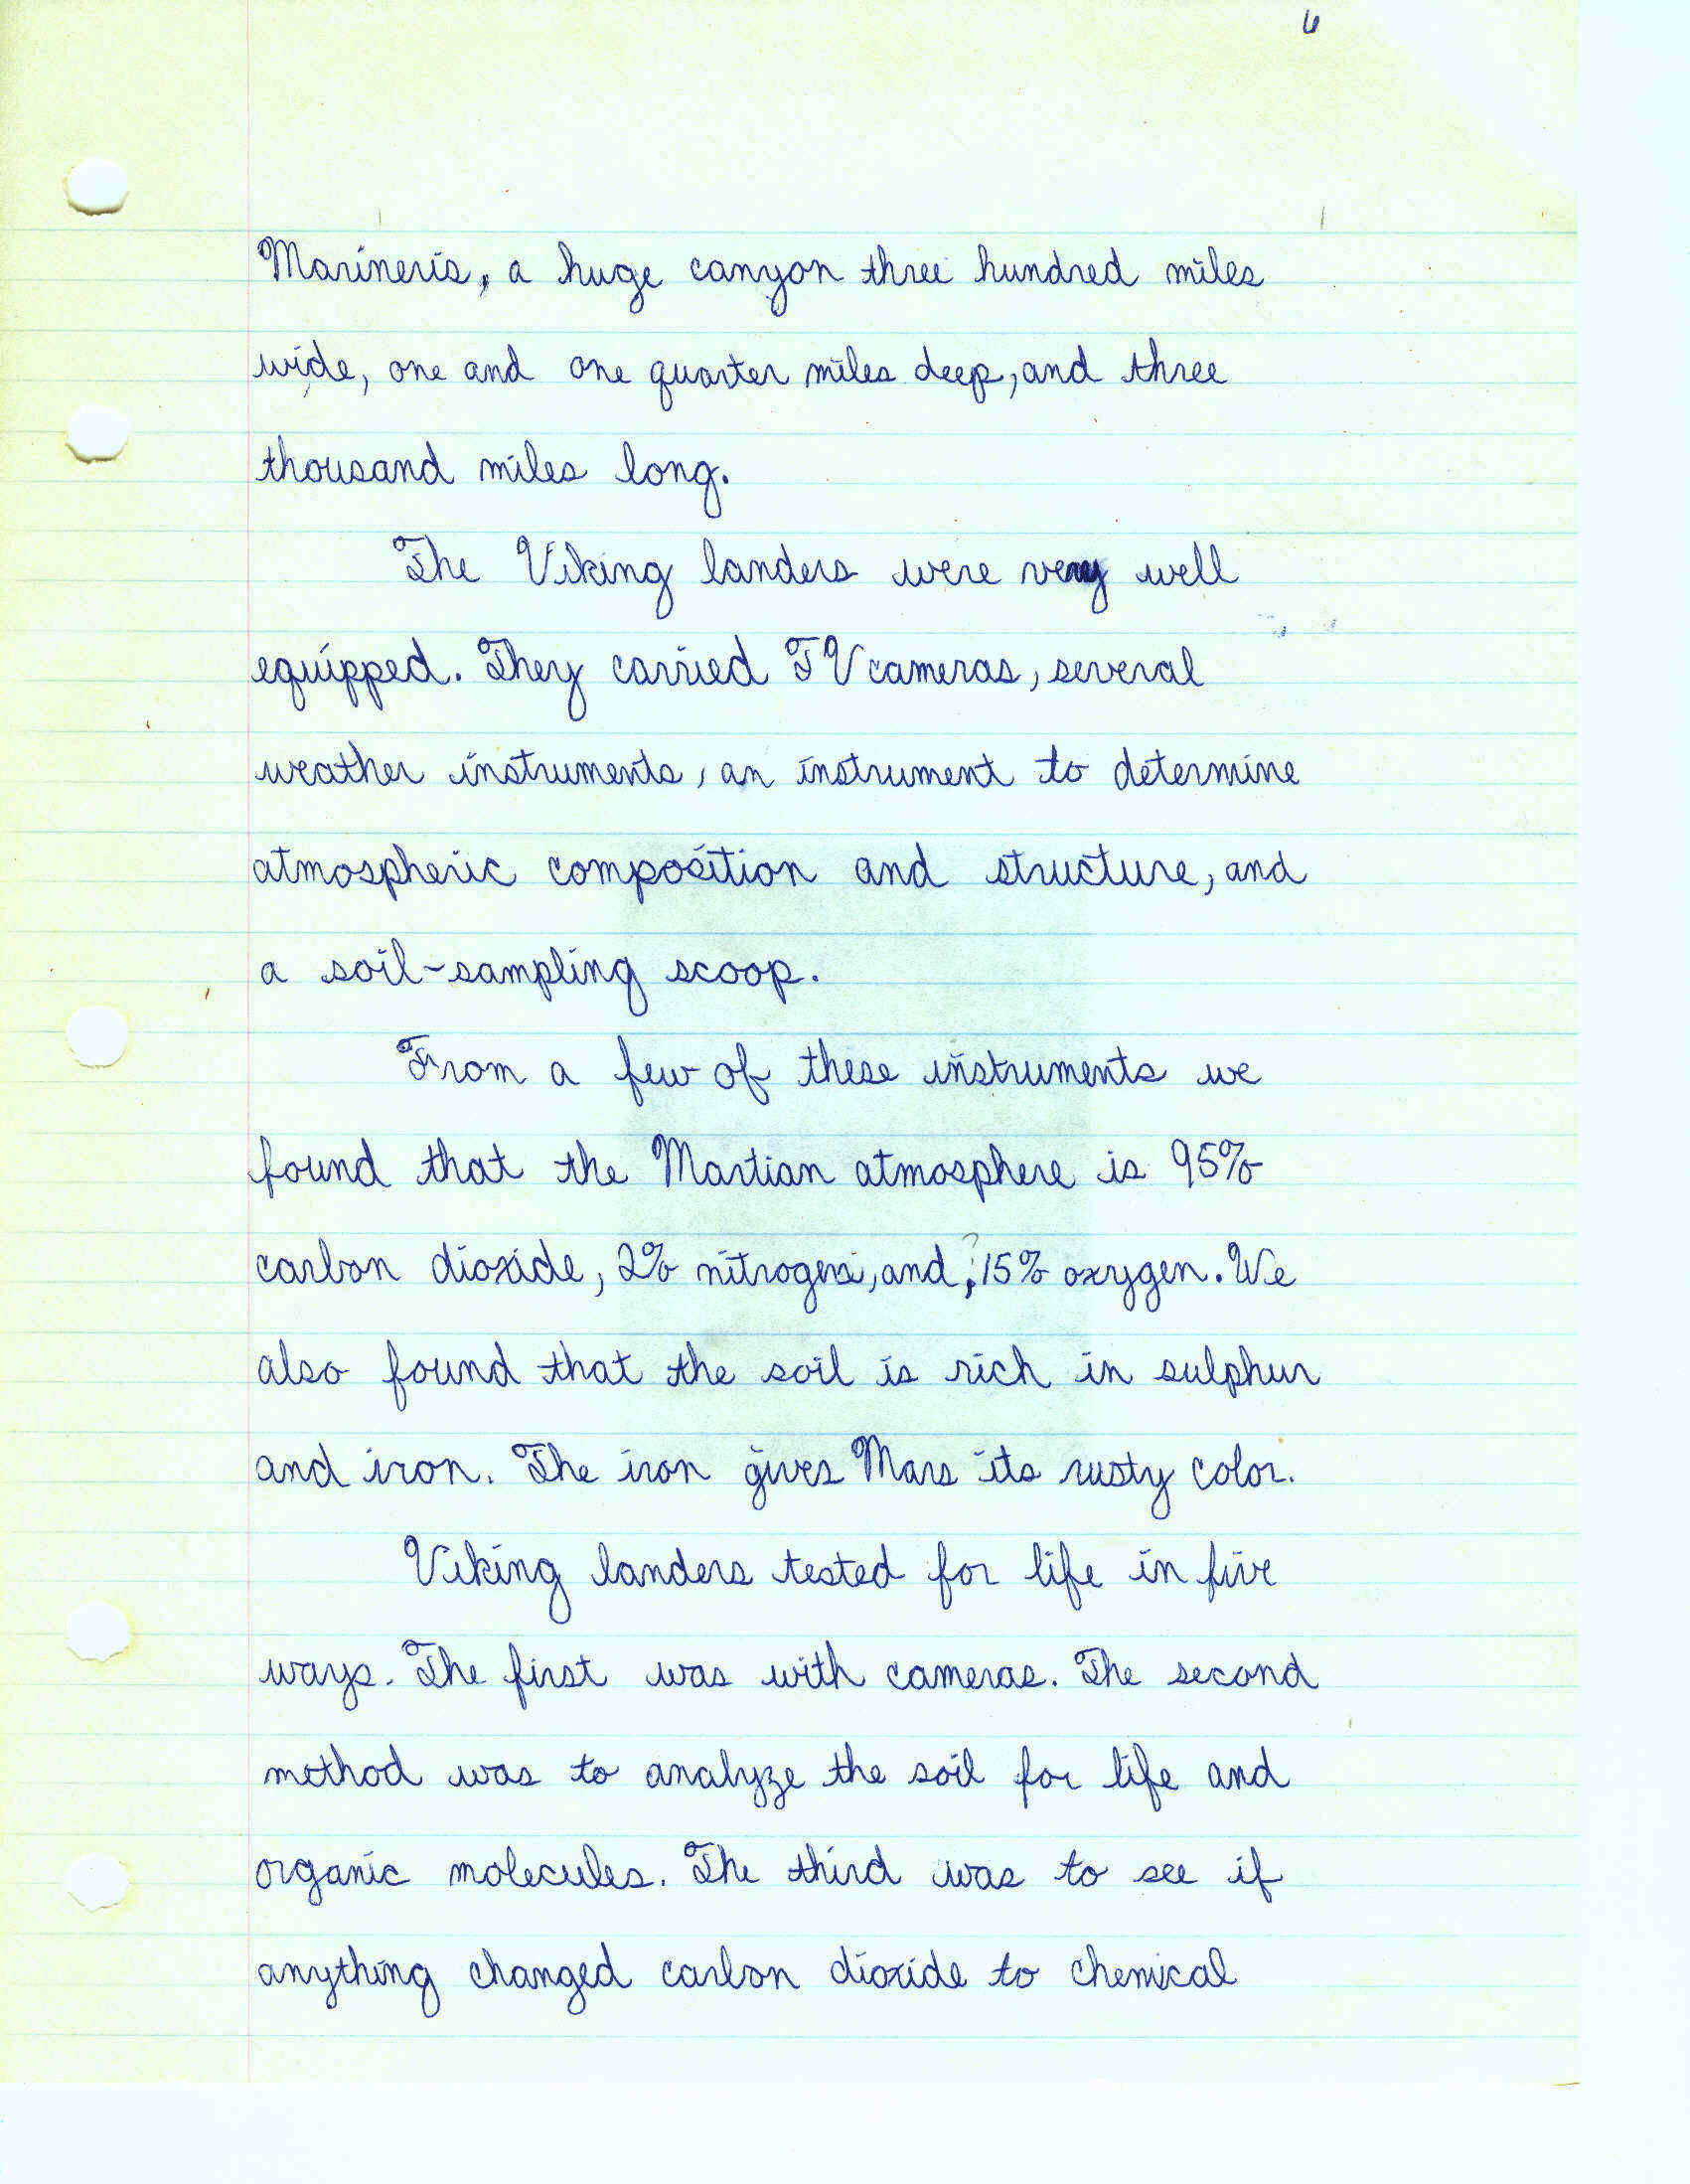 6
Marineris, a huge canyon three hundred miles
wide, one and one quarter miles deep, and three
thousand miles long.
The Viking landers were very well
equipped. They carried TV cameras, several
weather instruments, an instrument to determine
atmospheric composition and structure, and
a soil-sampling scoop.
From a few of these instruments we
found that the Martian atmosphere is 95%
carbon dioxide, 2% nitrogen, and .15% oxygen. We
also found that the soil is rich in sulphur
and iron. The iron gives Mars its rusty color.
Viking landers tested for life in five
ways. The first was with cameras. The second
method was to analyze the soil for life and
organic molecules. The third was to see if
anything changed carbon dioxide to chemical